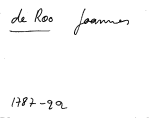 de Roo Joannes
1787-92